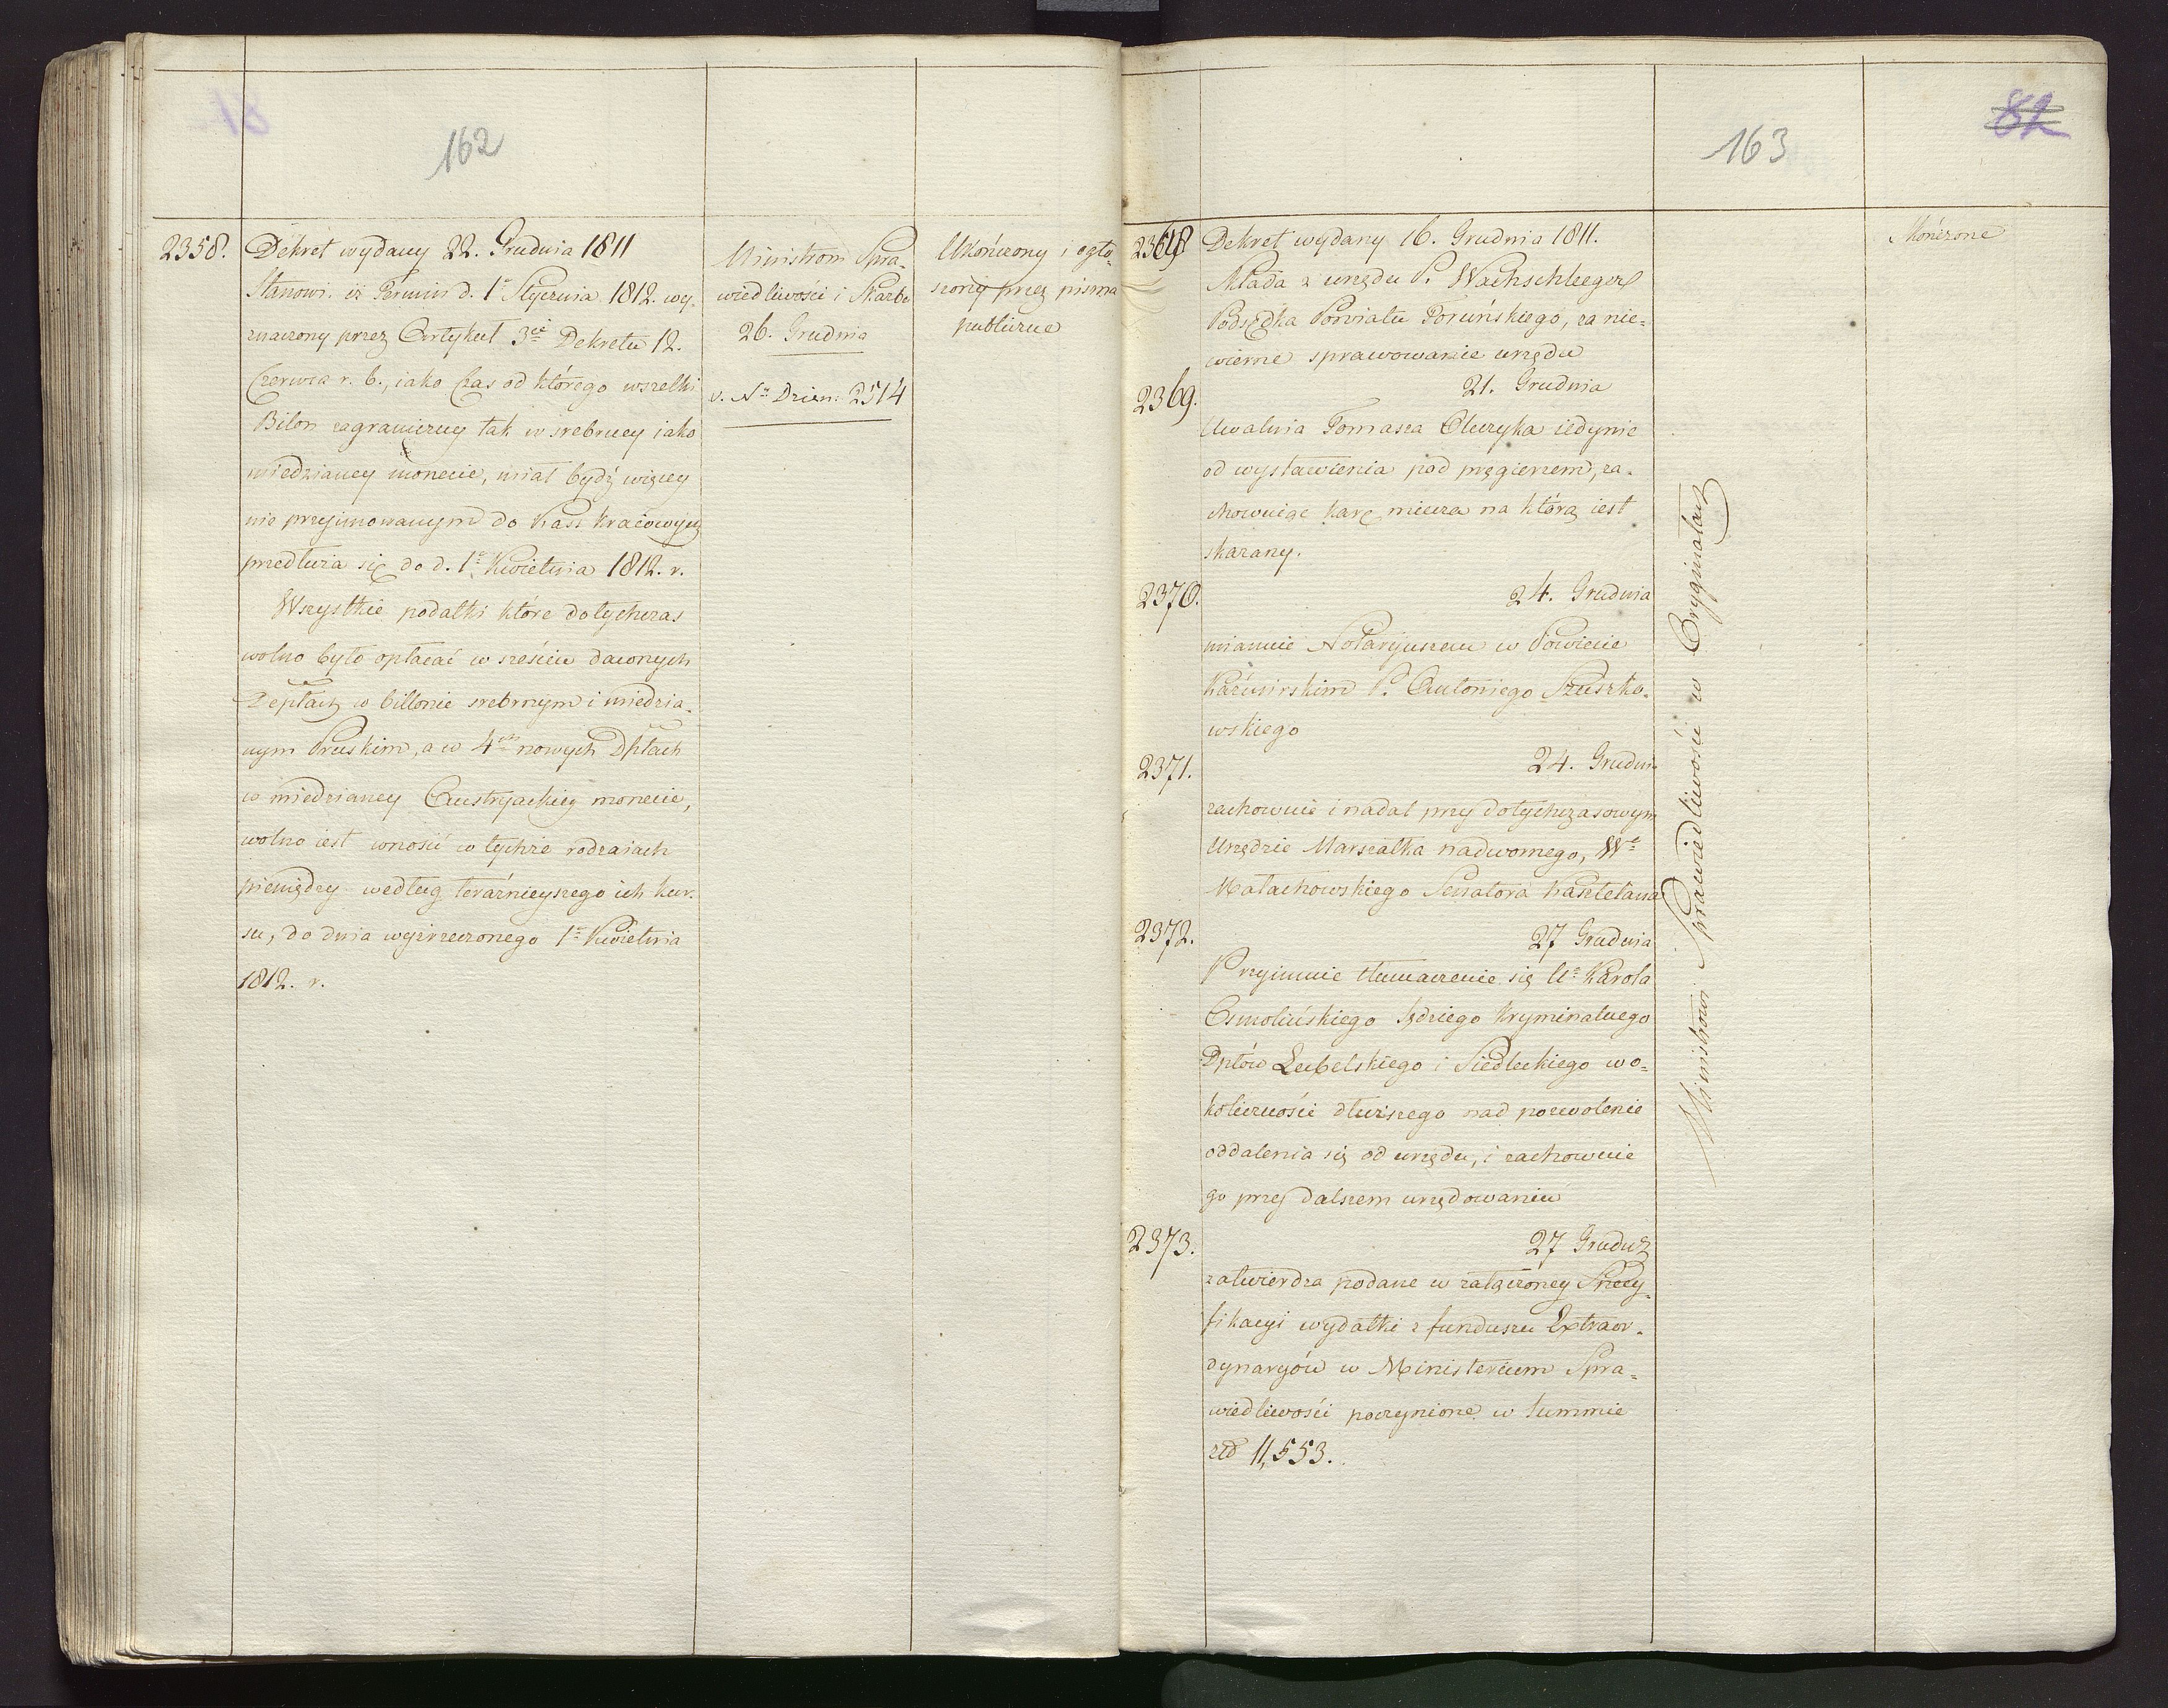 162
2358.
Dekret wydany 22. Grudnia 1811
Stanowi. iż Termin d. 1o Stycznia 1812. wy-
znaczony przez Artykuł 3ci Dekretu 12.
Czerwca r. b., iako Czas od którego wszelki
Bilon zagraniczny tak w srebrney iako
miedzianey monecie, miał bydź więcey
nie przyjmowanym do Kass kraiowych
przedłuża się do d. 1o Kwietnia 1812. r.
Wszystkie podatki które dotychczas
wolno było opłacać w sześciu dawnych
Depttach w billonie srebrnym i miedzia-
nym Pruskim, a w 4ech nowych Dpttach
w miedzianey Austryackiey monecie,
wolno iest wnosić w tychże rodzaiach
pieniędzy według teraźnieyszego ich kur-
su, do dnia wyżrzeczonego 1o Kwietnia
1812. r.
Ministrom Spra-
wiedliwości i Skarbu
26. Grudnia
v. No Dzien: 2514
Ukończony i ogło-
szony przez pisma
publiczne
163
82
2368
Dekret wydany 16. Grudnia 1811.
Składa z urzędu P. Wachschlegel
Podsędka Powiatu Toruńskiego, za nie=
wierne sprawowanie urzędu
2369.
21. Grudnia
Uwalnia Tomasza Oleżyka iedynie
od wystawienia pod pręgierzem, za-
chowuiąc karę miecza na którą iest
skazany.
2370.
24. Grudnia
mianuie Notaryuszem w Powiecie
P. Antoniego Szuszko-
wskiego
2371.
24. Grudnia
zachowuie i nadal przy dotychczasowym
Urzędzie Marszałka nadwornego, Wo
Małachowskiego Senatora Kasztelana
2372.
27 Grudnia
Przyimuie tłumaczenie się Uo Karola
Osmolińskiego Sędziego Kryminalnego
Dptów Lubelskiego i Siedleckiego w o-
koliczności dłuższego nad pozwolenie
oddalenia się od urzędu, i zachowuie
go przy dalszem urzędowaniu
2373.
27 Grudnia
zatwierdza podane w załączoney Specy-
fikacyi wydatki z funduszu Extraor-
dynaryów w Ministerium Spra-
wiedliwości poczynione w Summie
złt 11,553.
Ministrowi Sprawiedliwości w Oryginałach
Skończone